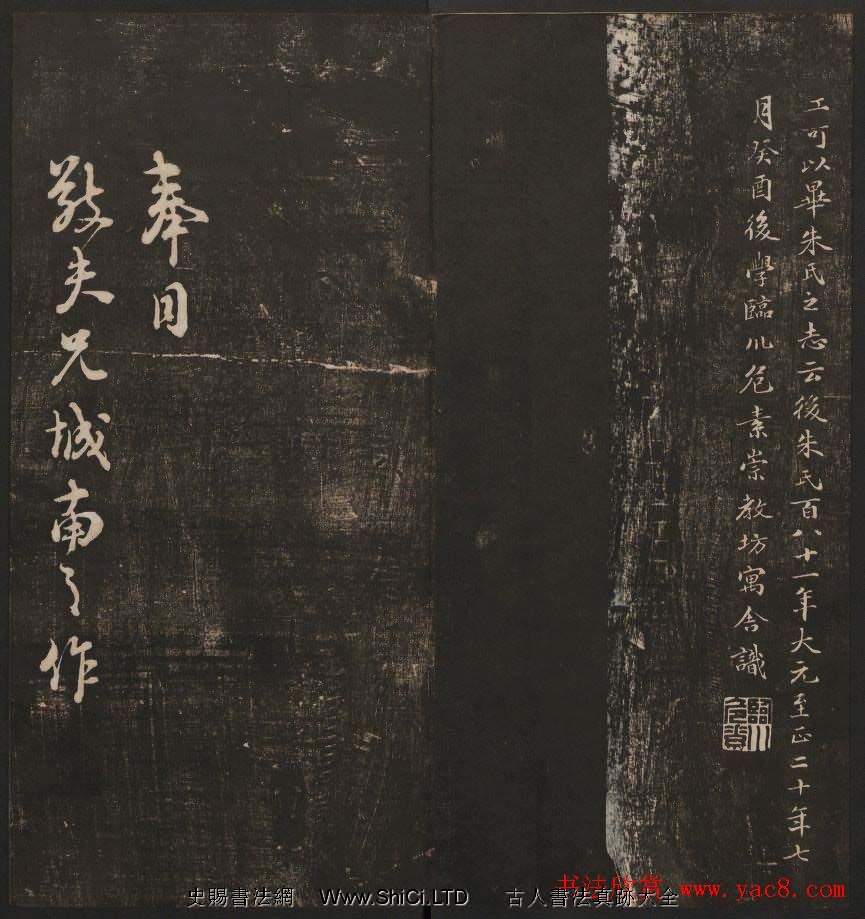 工可以畢朱氏之志云後朱氏百八十一年大元至正二十年七
月癸酉後學臨川危素崇教坊寓舍識
奉同
敬夫兄城南之作
史賜書法網 Www.ShiCi.LTD 古人書法真跡大全
书法欣赏 www.yac8.com